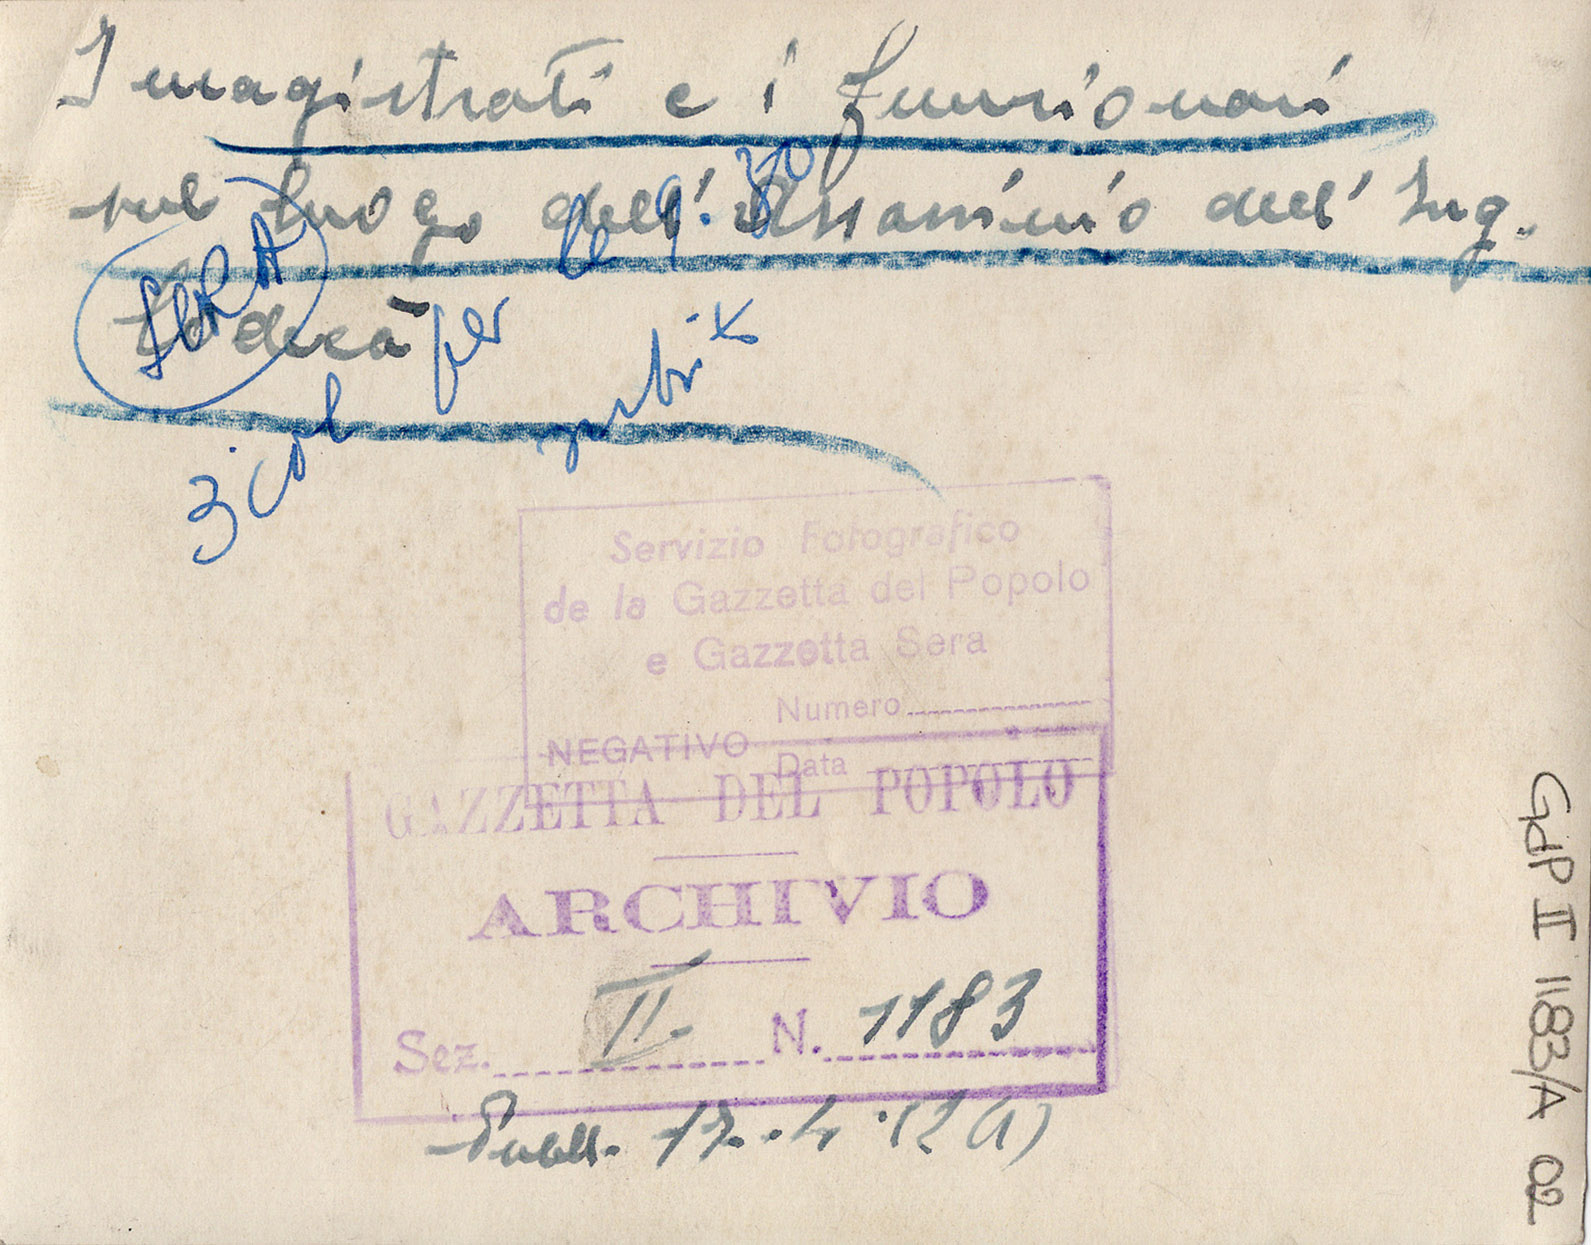 I magistrati e i funzionari
sul luogo dell'assassinio dell'Ing.
Codecà
SERA
3 col per le 9.30
Servizio Fotografico
de la Gazzetta del Popolo
e Gazzetta Sera
Numero
NEGATIVO Data
GAZZETTA DEL POPOLO
ARCHIVIO
Sez. II. N. 1183
Pubbl. 17.4
GdP II 1183/A 02